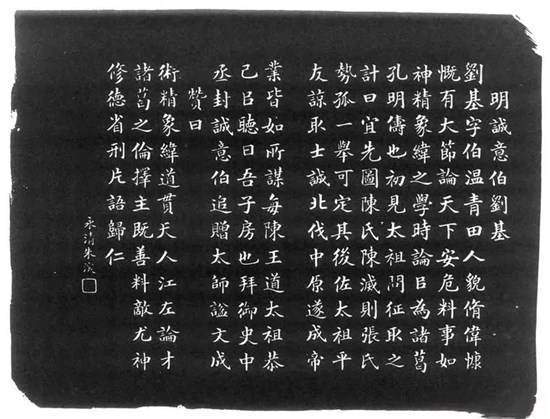 明誠意伯劉基
劉基字伯溫青田人貌脩偉慷
慨有大節論天下安危料事如
神精象緯之學時論㠯為諸葛
孔明儔也初見太祖問征取之
計曰宜先圖陳氏陳滅則張氏
勢孤一舉可定其後佐太祖平
友諒取士誠北伐中原遂成帝
業皆如所謀每陳王道太祖恭
己㠯聽曰吾子房也拜御史中
丞封誠意伯追贈太師諡文成
贊曰
術精象緯道貫天人江左論才
諸葛之倫擇主既善料敵尤神
修德省刑片語歸仁
永清朱